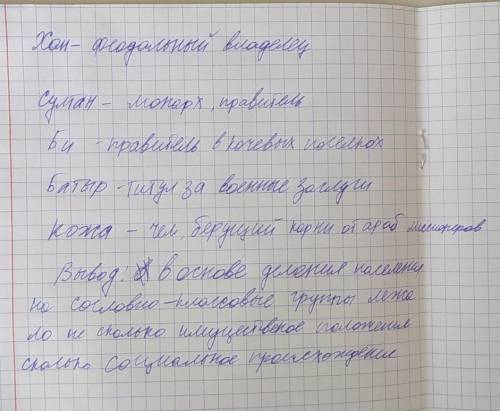 Хан - феодальный владелец
Султан - монарх, правитель
Би - правитель в кочевых поселках
Батыр - титул за военные заслуги
Кожа - чел, берущий корни от араб миссионеров
Вывод. В основе деления населения
на сословно-классовые группы лежа
ло не сколько имущественое положения
сколько социальное происхождение